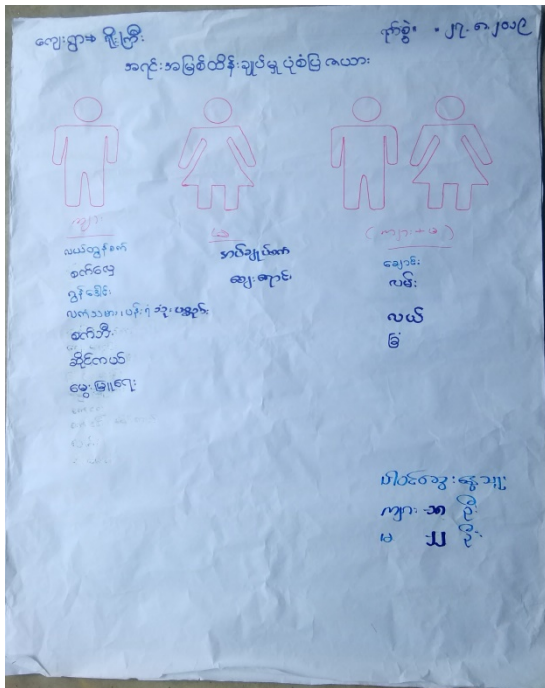 ကျေးရွာ ရိုးကြီး
ရက်စွဲ ၊ ၂၇. ၈. ၂၀၁၉
အရင်းအမြစ်ထိန်းချုပ်မှု ပုံစံပြ ဇယား
ကျား
မ
(ကျား + မ)
လယ်ထွန်စက်
စက်လှေ
ထွန်
လက်သမား ၊ ပန်းရံ သုံး ပစ္စည်း
စက်ဘီး
ဆိုင်ကယ်
မွေးမြူရေး
အပ်ချုပ်စက်
ဈေးရောင်း
ချောင်း
လမ်း
လယ်
ခြံ
ပါဝင်ဆွေးနွေးသူ
ကျား ဦး
မ ဦး